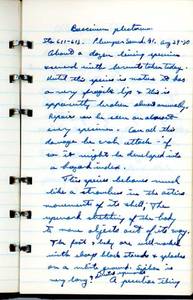 Buccinum plectrum
Sta 611-613. Plumper Sound, B.C. Aug 29 '30
About a dozen living specimens
secured ninth serrate taken today.
Until this species is noted it has
a very fragile lip & this is
apparently broken almost annually.
Repairs can be seen on almost
every specimen. Can all this
damage be crab attack - if
so it might be developed into
a hazard index.
This species behaves much
like a strombus in the active
movements of its shell, the
upward stretching of the body
to move objects out of its way.
The foot & body are well-marked
with sharp black streaks & splashes
on a white ground. Siphon is
very long. A peculiar thing